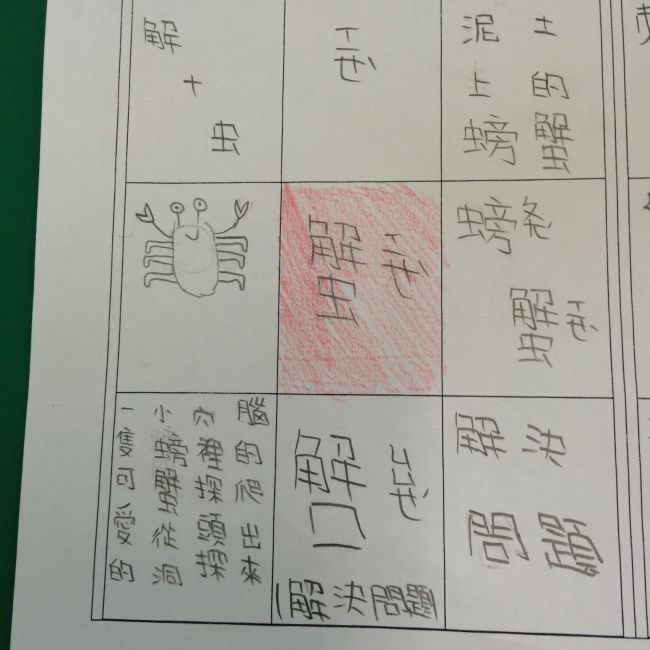 解
+
虫
ㄒㄧㄝˋ
泥土
上的
螃蟹
蟹 ㄒㄧㄝˋ
螃
蟹 ㄒㄧㄝˋ
一隻可愛的
小螃蟹從洞
穴裡探頭探
腦的爬出來
解
解決問題
解決
問題